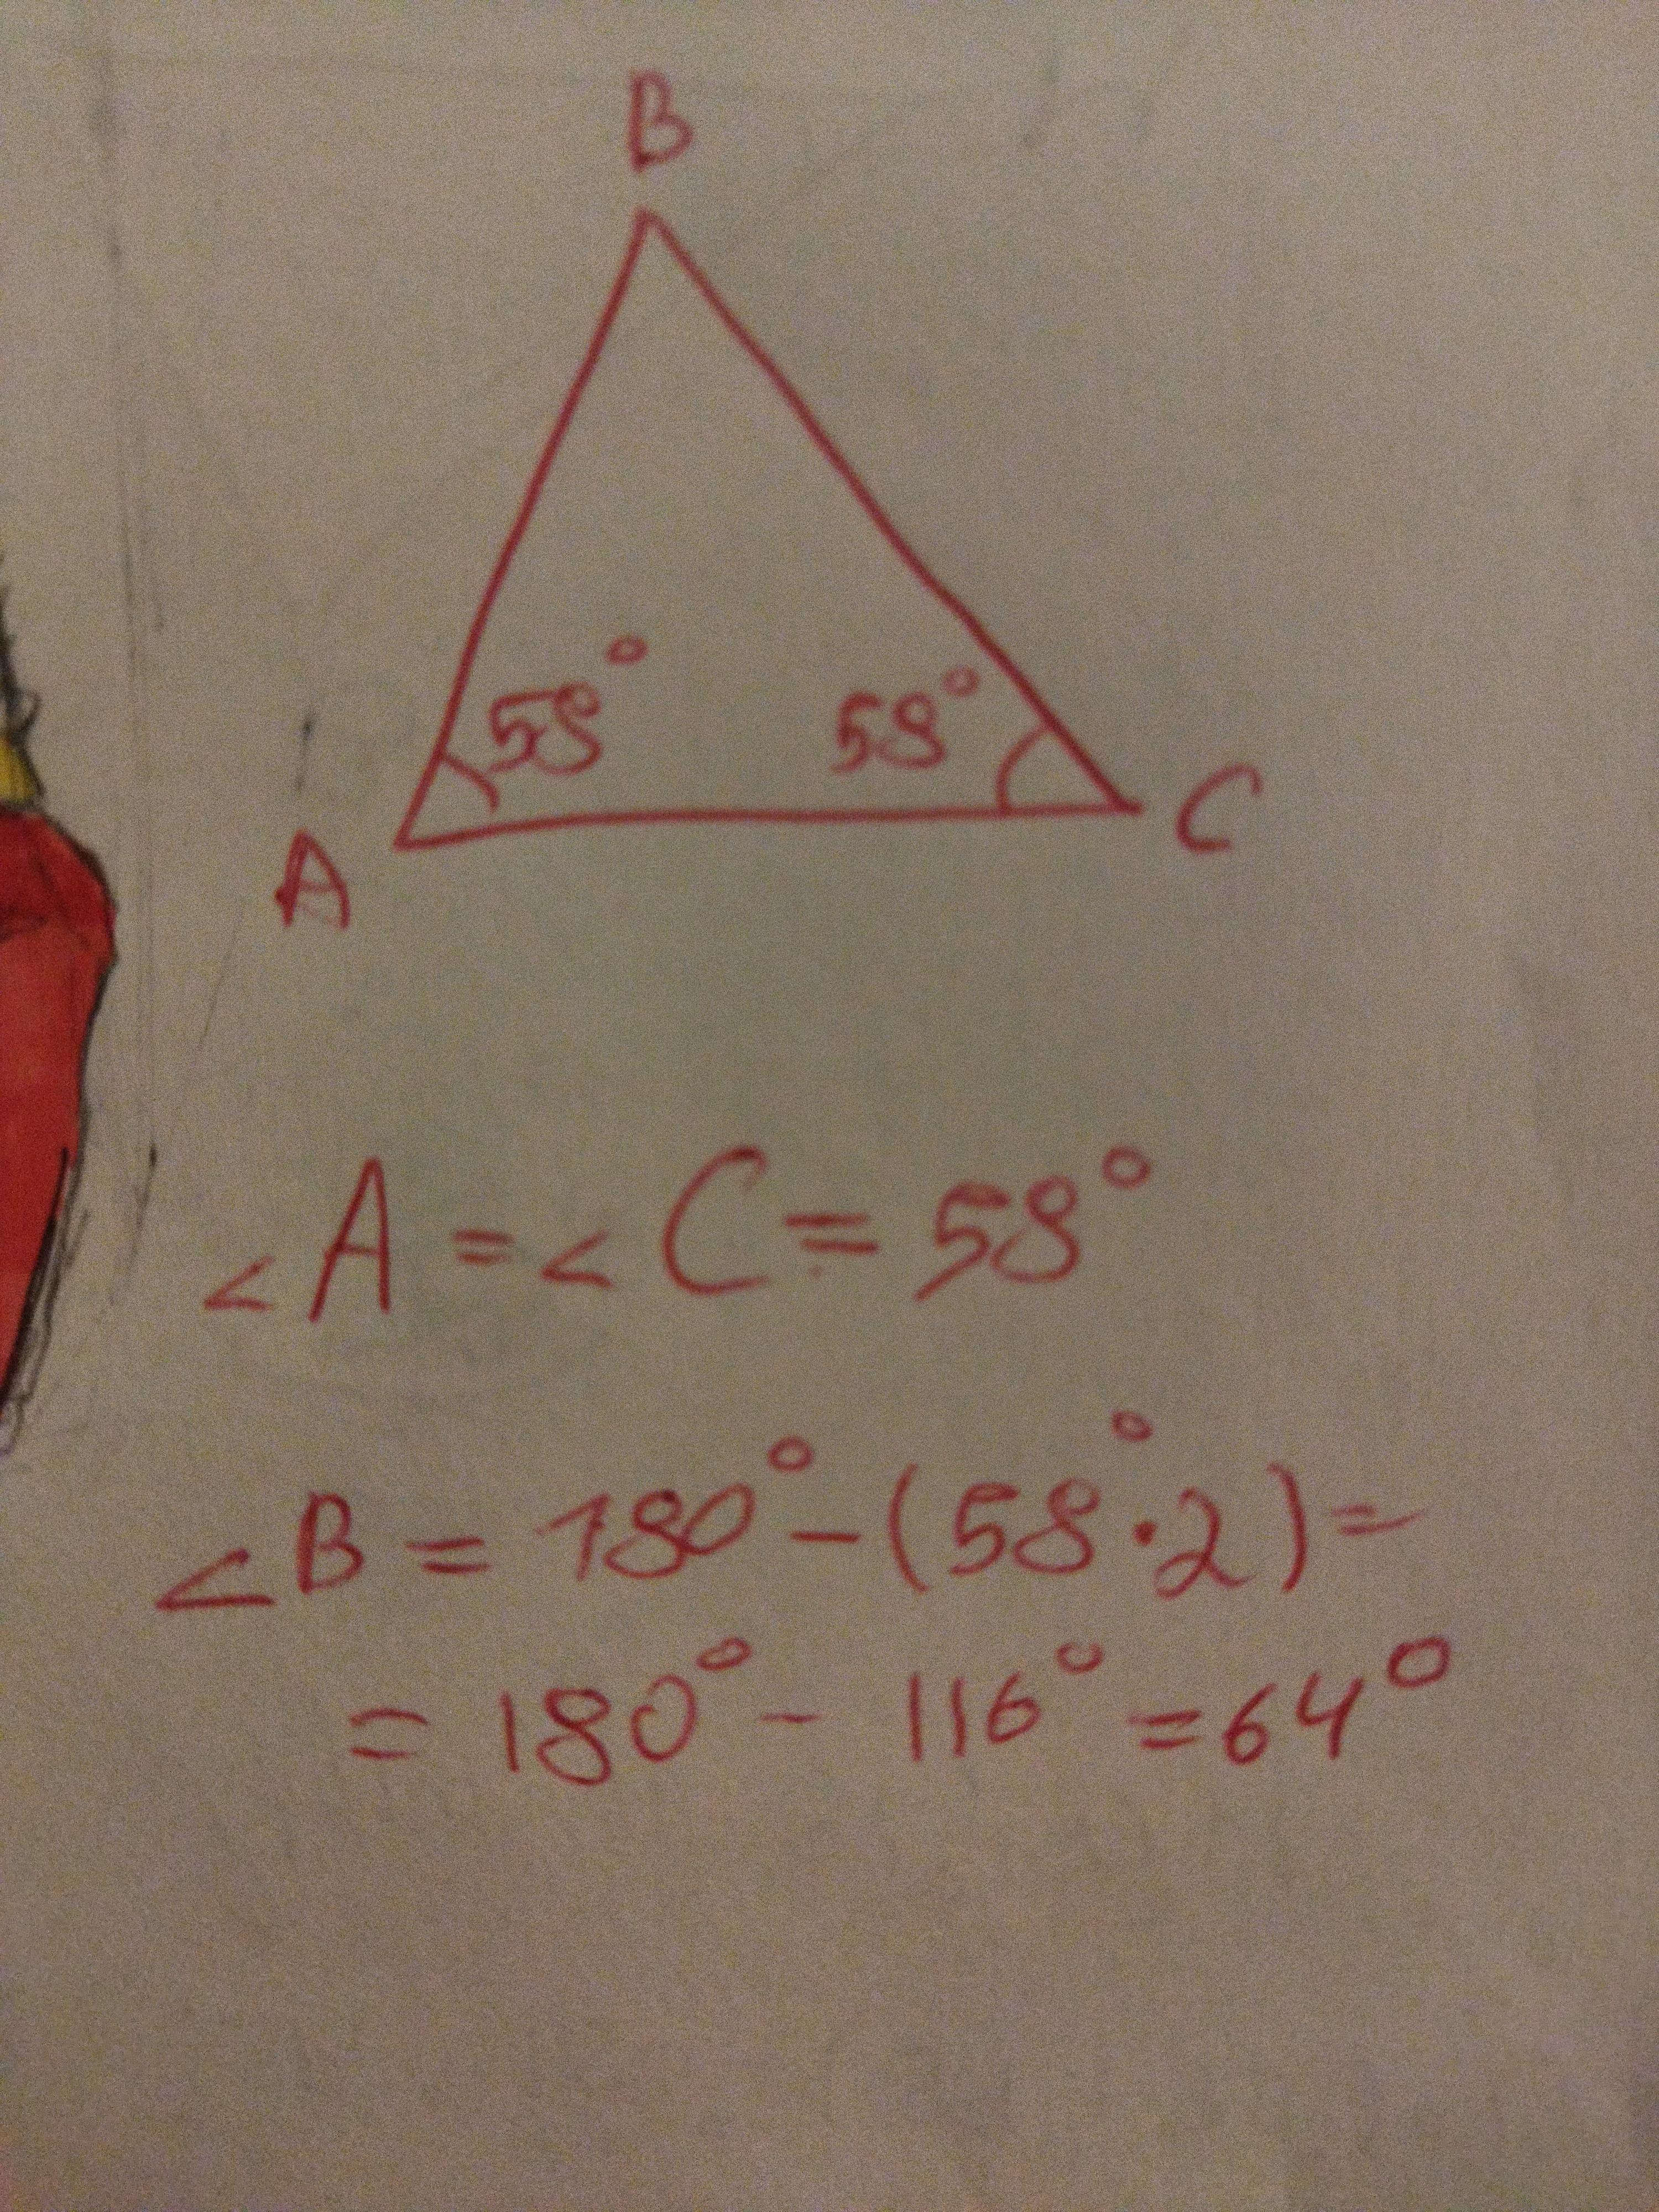 B
58° 58°
A C
∠A = ∠C = 58°
∠B = 180° - (58° · 2) =
= 180° - 116° = 64°